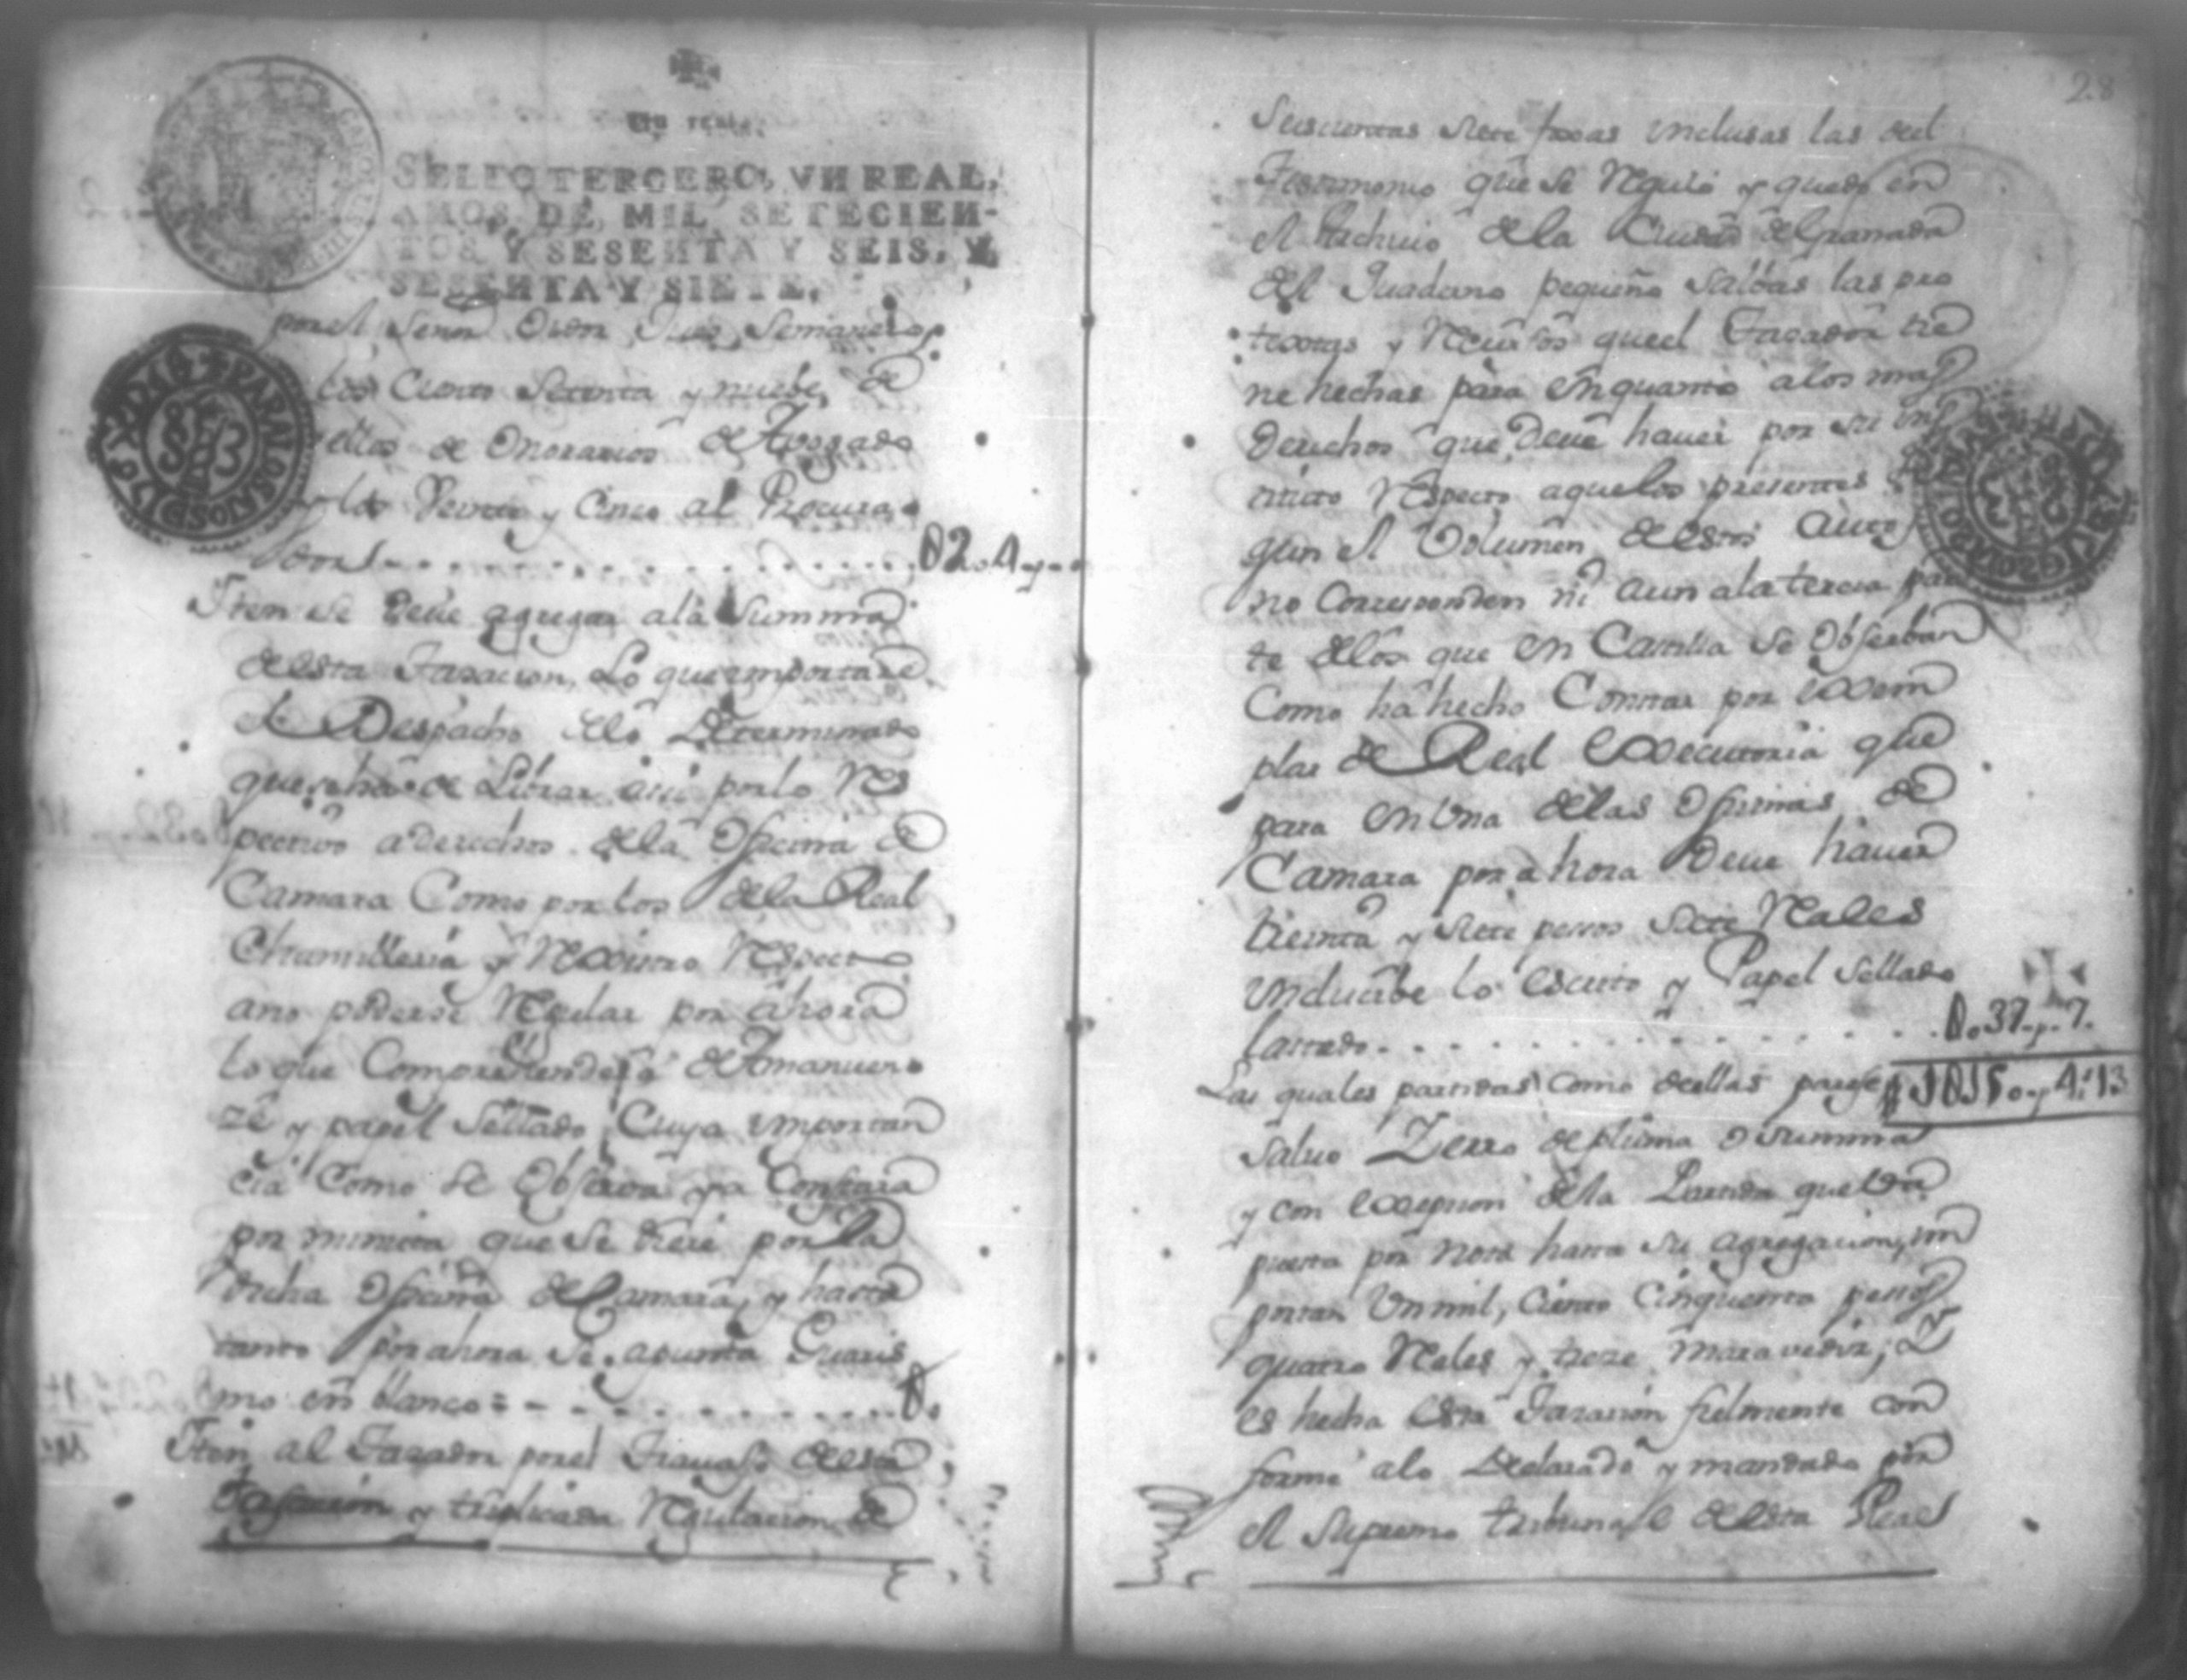 Un real.
SELLO TERCERO, VN REAL,
AÑOS DE MIL SETECIEN-
TOS Y SESENTA Y SEIS, Y
SESENTA Y SIETE.
por el Señor Oidor Juez Semanero
los Ciento Setenta y nuebe de
ellos de Onorarios de Avogado
los Veinte y Cinco al Procura
02..4
Iten se deve agregar ala Summa
de esta Tasacion, Lo que importare
el Despacho de lo Determinado
que se ha de Librar asi por lo Res
pectivo a derechos de la Oficina de
Camara Como por los de la Real
Chancilleria y Rexistro Respecto
ano poderse Regular por ahora
lo que Comprehenderá de Amanuen
ze y papel Sellado Cuya importan
cia Como se Observa ya Constara
por minuta que se diere por la
dicha Oficina de Camara, y hasta
tanto por ahora se apunta Guaris
mo en blanco = 0.
Iten al Tasador por el Travajo de esta
Tasacion y triplicada Regulacion de
28
Seiscientas siete foxas inclusas las del
Testimonio que se Reguló y quedo en
el Archivo de la Ciudad de Granada
del Quaderno pequeño Salbas las pro
textas y Recursos que el Tasador tie
ne hechas para en quanto alos mas
derechos que deve haver por su ins
tituto Respecto aquelos presentes
gun el Volumen de estos Autos
no Corresponden ni aun ala tercia par
te de los que en Castilla se Observan
Como ha hecho Constar por Exem
plar de Real Executoria que
para en Una de las Oficinas de
Camara por ahora Deve haver
treinta y siete pesos siete Reales
inclucibe lo escrito y Papel Sellado
0.37.p.7.
Las quales partidas Como de ellas parece 1150.p.4.13
Salvo Zerro de pluma o summa
y con excepcion de la Partida que esta
puesta por nota hasta su agregacion, im
portan Un mil, Ciento Cinquenta pesos
quatro Reales y treze maravediz; Y
es hecha esta Tasacion fielmente con
forme alo Declarado y mandado por
el Supremo tribunal de esta Real